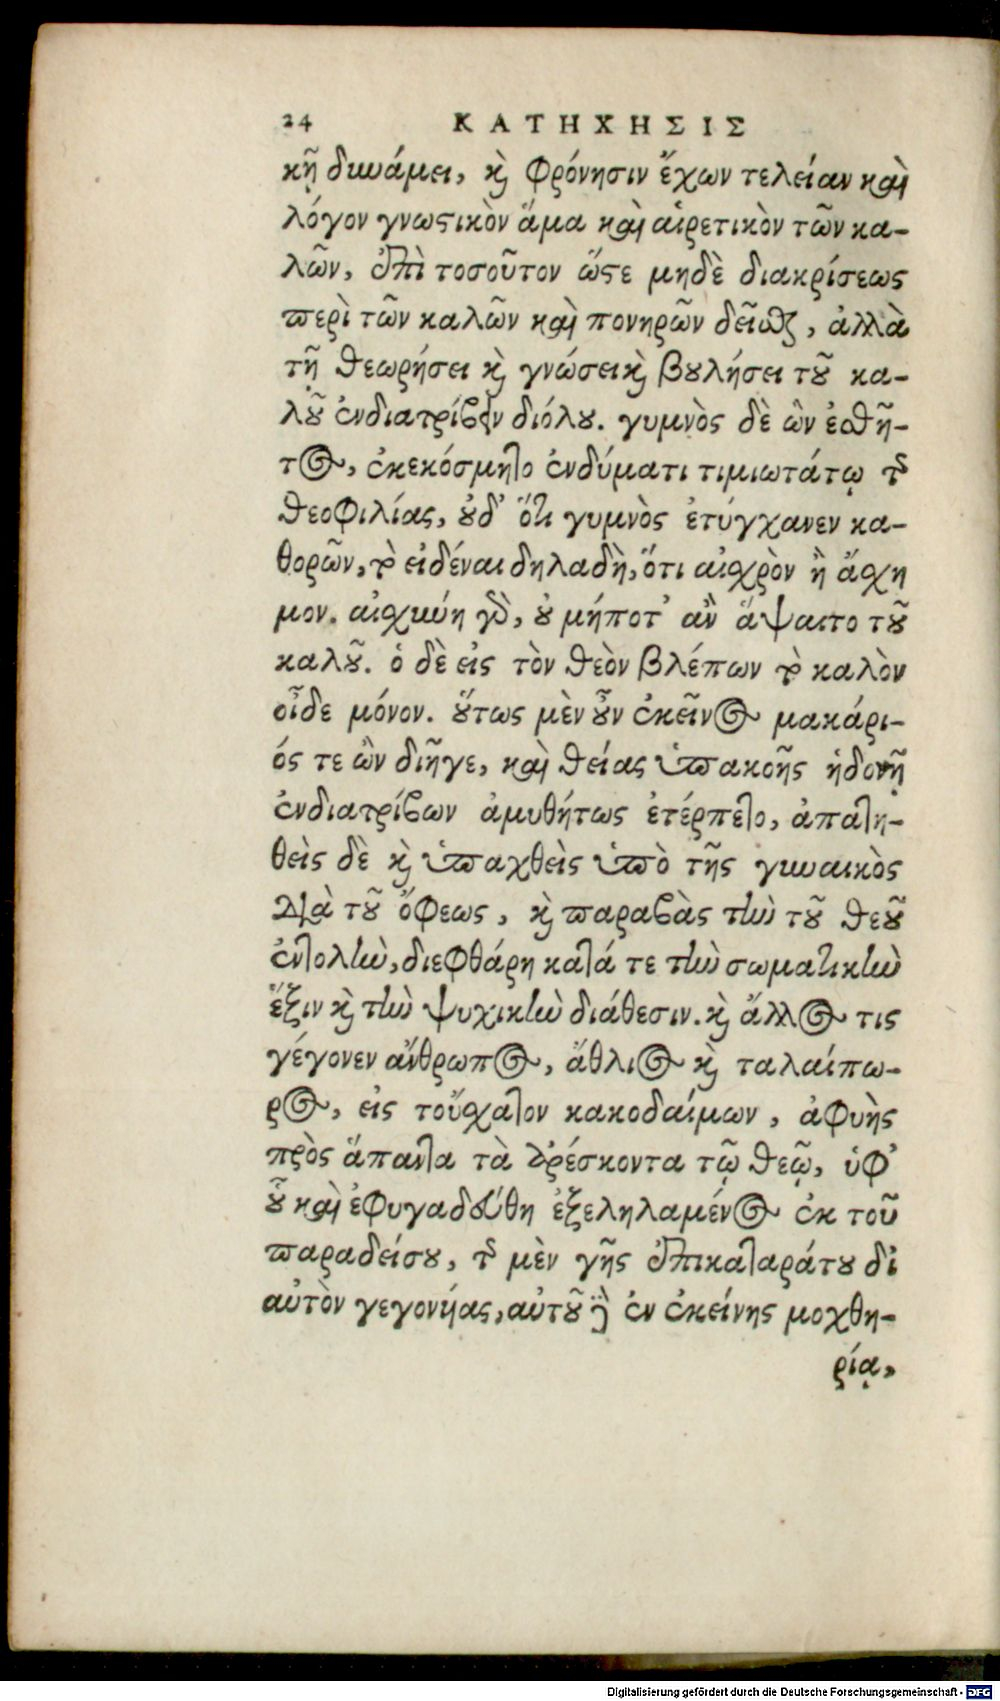 24 ΚΑΤΗΧΗΣΙΣ
κῇ δυνάμει, κỳ φρόνησιν ἔχων τελείαν καὶ
λόγον γνωϛικὸν ἅμα καὶ αἱρετικὸν τῶν κα-
λῶν, ἐπὶ τοσοῦτον ὥϛε μηδὲ διακρίσεως
περὶ τῶν καλῶν καὶ πονηρῶν δεῖσθαι, ἀλλὰ
τῇ θεωρήσει κỳ γνώσει κỳ βȣλήσει τȣ͂ κα-
λȣ͂ ἐνδιατρίβειν διόλȣ. γυμνὸς δὲ ὢν ἐσθῆ-
τος, ἐκεκόσμητο ἐνδύματι τιμιωτάτῳ τῆς
θεοφιλίας, ȣ̓δ᾽ ὅτι γυμνὸς ἐτύγχανεν κα-
θορῶν, τὸ εἰδέναι δηλαδὴ, ὅτι αἰσχρὸν ἢ ἄσχη
μον. αἰσχύνη γὰρ, ȣ̓ μήποτ᾽ ἂν ἅψαιτο τȣ͂
καλȣ͂. ὁ δὲ εἰς τὸν θεὸν βλέπων τὸ καλὸν
οἶδε μόνον. ȣ̔́τως μὲν ȣ̓͂ν ἐκεῖνος μακάρι-
ός τε ὢν διῆγε, καὶ θείας ὑπακοῆς ἡδονῇ
ἐνδιατρίβων ἀμυθήτως ἐτέρπετο, ἀπατη-
θεὶς δὲ κỳ ὑπαχθεὶς ὑπὸ τῆς γυναικὸς
διὰ τȣ͂ ὄφεως, κỳ παραβὰς τὴν τȣ͂ θεȣ͂
ἐντολὴν, διεφθάρη κατά τε τὴν σωματικὴν
ἕξιν κỳ τὴν ψυχικὴν διάθεσιν. κỳ ἄλλος τις
γέγονεν ἄνθρωπος, ἄθλιος κỳ ταλαίπω-
ρος, εἰς τοὔσχατον κακοδαίμων, ἀφυὴς
πρὸς ἅπαντα τὰ ἀρέσκοντα τῷ θεῷ, ὑφ᾽
ȣ̔͂ καὶ ἐφυγαδεύθη ἐξεληλαμένος ἐκ τοῦ
παραδείσȣ, τῆς μὲν γῆς ἐπικαταράτȣ δι
αὐτὸν γεγονυίας, αὐτȣ͂ δὲ ἐν ἐκείνης μοχθη-
ρίᾳ,
Digitalisierung gefördert durch die Deutsche Forschungsgemeinschaft - DFG